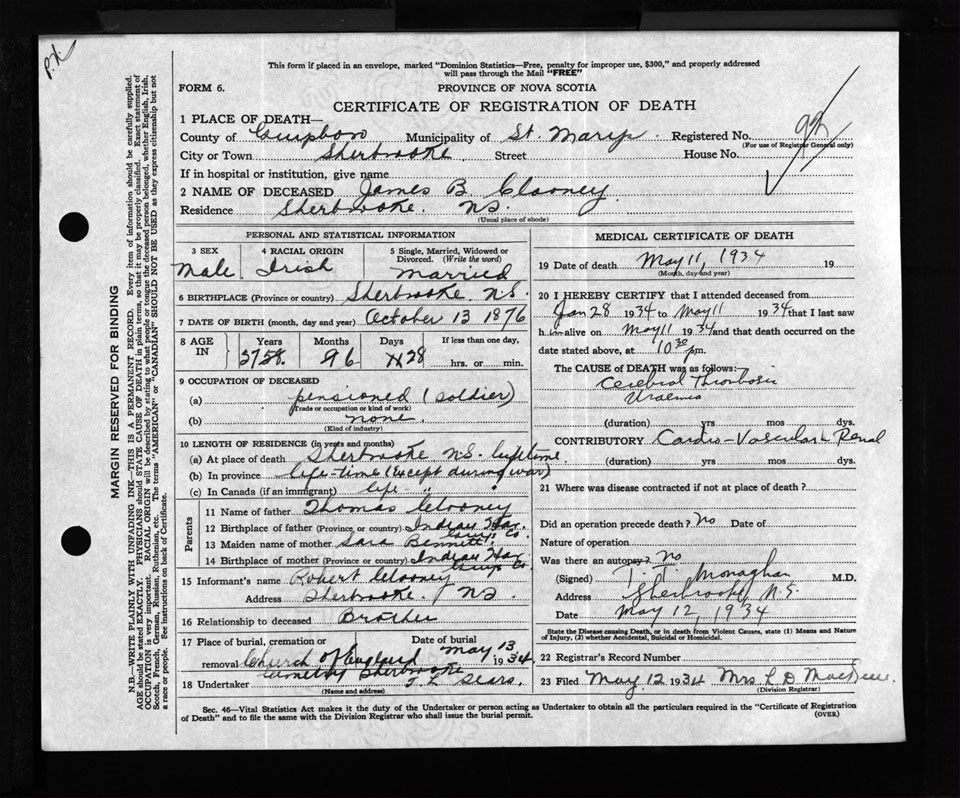 P.X.
MARGIN RESERVED FOR BINDING
N.B.—WRITE PLAINLY WITH UNFADING INK—THIS IS A PERMANENT RECORD. Every item of information should be carefully supplied.
AGE should be stated EXACTLY. PHYSICIANS should STATE CAUSE OF DEATH in plain terms, so that it may be properly classified. Exact statement of
OCCUPATION is very important. RACIAL ORIGIN will be described by stating to what people or tongue the deceased person belonged, whether English, Irish,
Scotch, French, German, Russian, Ruthenian, etc. The terms "AMERICAN" or "CANADIAN" SHOULD NOT BE USED as they express citizenship but not
a race or people. See instructions on back of Certificate.
This form if placed in an envelope, marked "Dominion Statistics—Free, penalty for improper use, $300," and properly addressed
will pass through the Mail "FREE"
FORM 6. PROVINCE OF NOVA SCOTIA
CERTIFICATE OF REGISTRATION OF DEATH
1 PLACE OF DEATH—
County of Guysboro Municipality of St. Marys Registered No.
(For use of Registrar General only)
City or Town Sherbrooke Street House No.
If in hospital or institution, give name
2 NAME OF DECEASED James B. Clooney
Residence Sherbrooke. NS.
(Usual place of abode)
PERSONAL AND STATISTICAL INFORMATION
3 SEX Male
4 RACIAL ORIGIN Irish
5 Single, Married, Widowed or
Divorced. (Write the word)
Married
6 BIRTHPLACE (Province or country) Sherbrooke N.S.
7 DATE OF BIRTH (month, day and year) October 13 1876
8 AGE IN Years Months Days If less than one day,
57 6 28 hrs. or min.
9 OCCUPATION OF DECEASED
(a) pensioned (soldier)
(Trade or occupation or kind of work)
(b) none.
(Kind of industry)
10 LENGTH OF RESIDENCE (in years and months)
(a) At place of death Sherbrooke N.S. lifetime
(b) In province life-time (except during war)
(c) In Canada (if an immigrant) life
Parents
11 Name of father Thomas Clooney
12 Birthplace of father (Province or country) Indian Har.
Guys Co.
13 Maiden name of mother Sara Bennett
14 Birthplace of mother (Province or country) Indian Har
Guys Co
15 Informant's name Robert Clooney
Address Sherbrooke. NS.
16 Relationship to deceased Brother
17 Place of burial, cremation or removal Church of England
Cemetery Sherbrooke
Date of burial May 13 1934
18 Undertaker T. L. Sears.
(Name and address)
MEDICAL CERTIFICATE OF DEATH
19 Date of death May 11, 1934 19
(Month, day and year)
20 I HEREBY CERTIFY that I attended deceased from
Jan 28 1934 to May 11 1934 that I last saw
him alive on May 11 1934 and that death occurred on
date stated above, at 10 30 pm.
The CAUSE of DEATH was as follows:—
Cerebral Thrombosis
Uraemia
(duration) yrs mos dys.
CONTRIBUTORY Cardio-Vascular Renal
(duration) yrs mos dys.
21 Where was disease contracted if not at place of death?
Did an operation precede death? No Date of
Nature of operation
Was there an autopsy? no
(Signed) Monaghan M.D.
Address Sherbrooke, N.S.
Date May 12, 1934
State the Disease causing Death, or in death from Violent Causes, state (1) Means and Nature
of Injury, (2) whether Accidental, Suicidal or Homicidal.
22 Registrar's Record Number
23 Filed May 12 1934 Mrs L D
(Division Registrar)
Sec. 46—Vital Statistics Act makes it the duty of the Undertaker or person acting as Undertaker to obtain all the particulars required in the "Certificate of Registration
of Death" and to file the same with the Division Registrar who shall issue the burial permit.
(OVER)